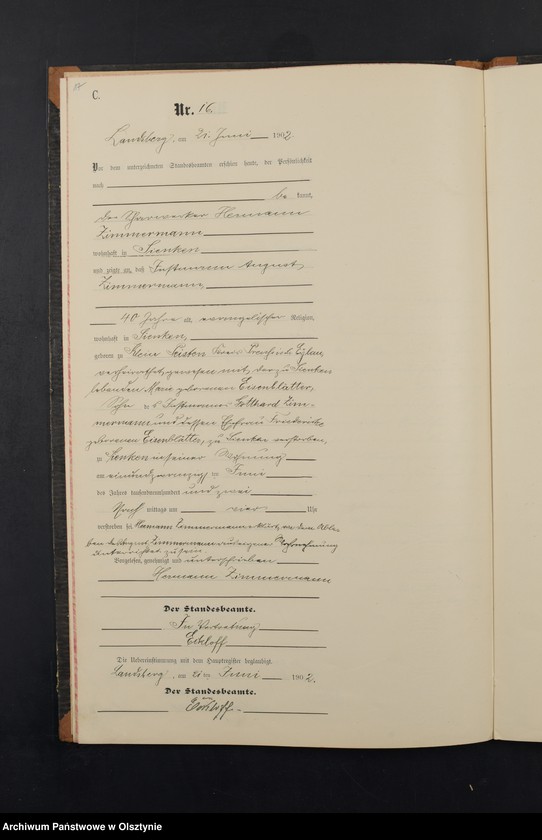 C.
Nr. 16.
Landsberg, am 21. Juni 1902.
Vor dem unterzeichneten Standesbeamten erschien heute, der Persönlichkeit
nach
be kannt,
der Scharwerker Hermann
Zimmermann
wohnhaft in Sienken
und zeigte an, daß Instmann August
Zimmermann
40 Jahre a evangelischer Religion,
wohnhaft in Sienken,
geboren zu Klein Preußisch Eylau,
verheirathet gewesen mit der zu Sienken
lebenden geborenen Eisenblätter,
Sohn des Instmannes Gotthard Zim-
mermann und dessen Ehefrau Friederike
geborenen Eisenblätter, zu Sienken verstorben,
zu Sienken in seiner Wohnung
am einundzwanzigsten Juni
des Jahres tausendneunhundert und zwei
Nach mittags um vier Uhr
verstorben sei. Hermann Zimmermann erklärt, von dem Able-
ben des August Zimmermann aus eigener Wahrnehmung
unterrichtet zu sein.
Vorgelesen, genehmigt und unterschrieben
Hermann Zimmermann
Der Standesbeamte.
In Vertretung
Eckloff
Die Uebereinstimmung mit dem Hauptregister beglaubigt.
Landsberg, am 21ten Juni 1902.
Der Standesbeamte.
Eckloff.
Archiwum Państwowe w Olsztynie